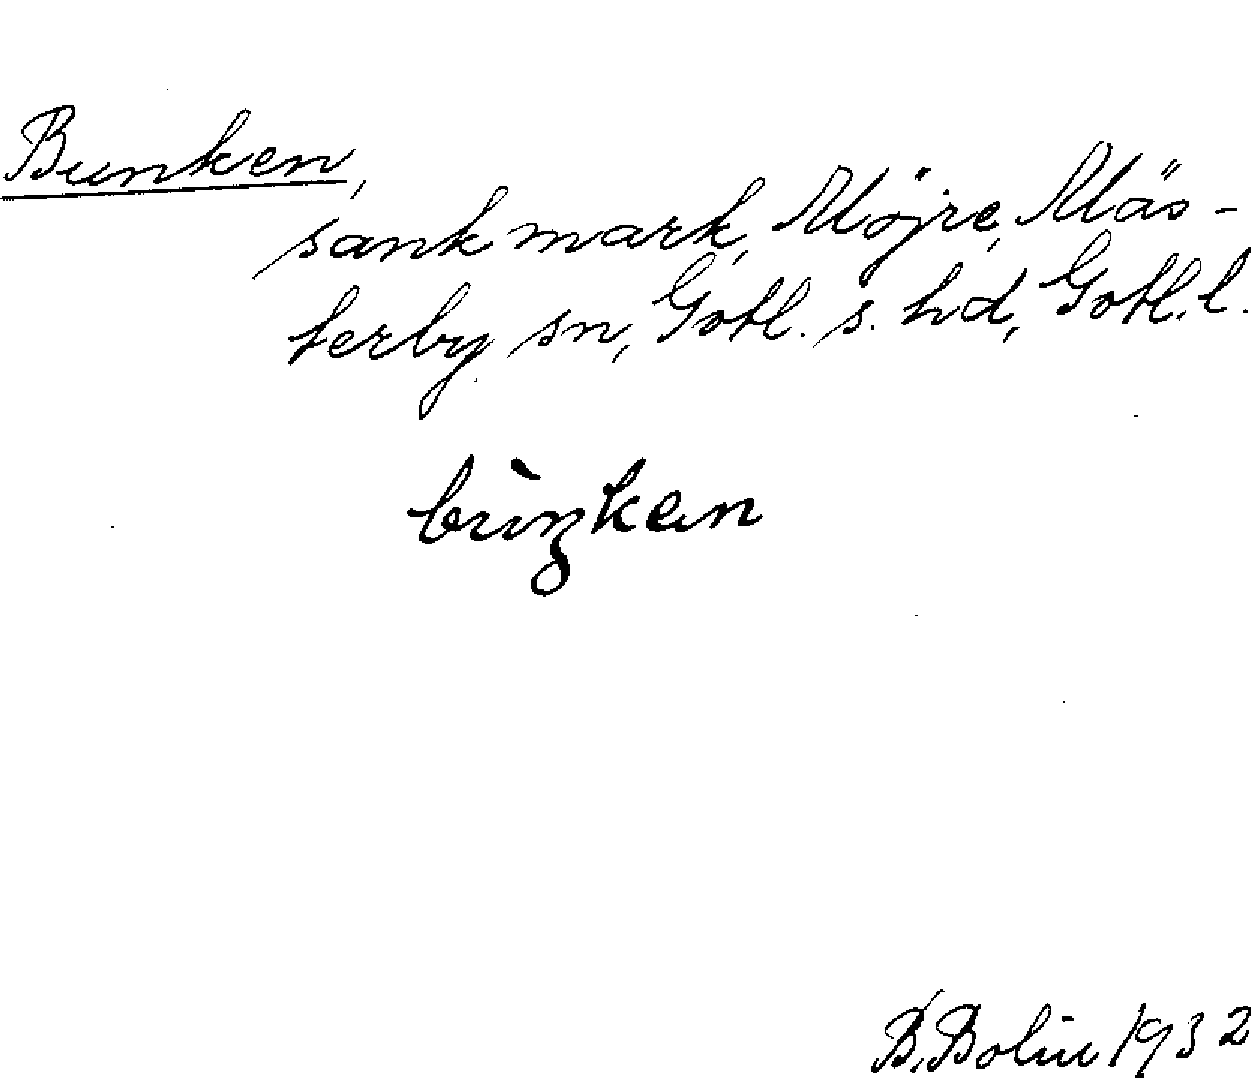 Bunken,
sank mark, Möjre, Mäs-
terby sn, Gotl. s. hd, Gotl. l.
bùŋken
B. Bolin 1932